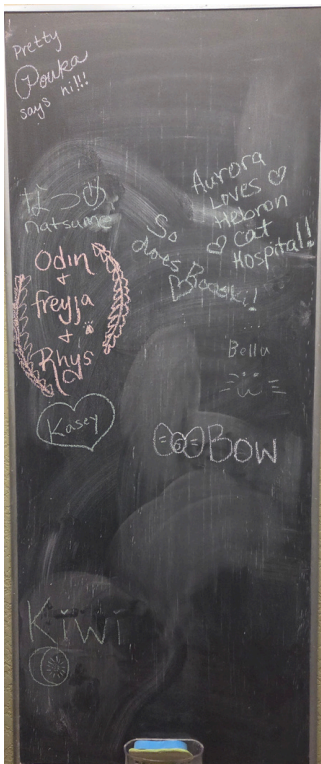 Pretty
Pouka
says hi!!!
なつめ
natsume
Aurora
Loves
Hebron
Cat
Hospital!
So
does
Odin
+
freyja
+
Rhys
Bella
Kasey
Bow
Kiwi